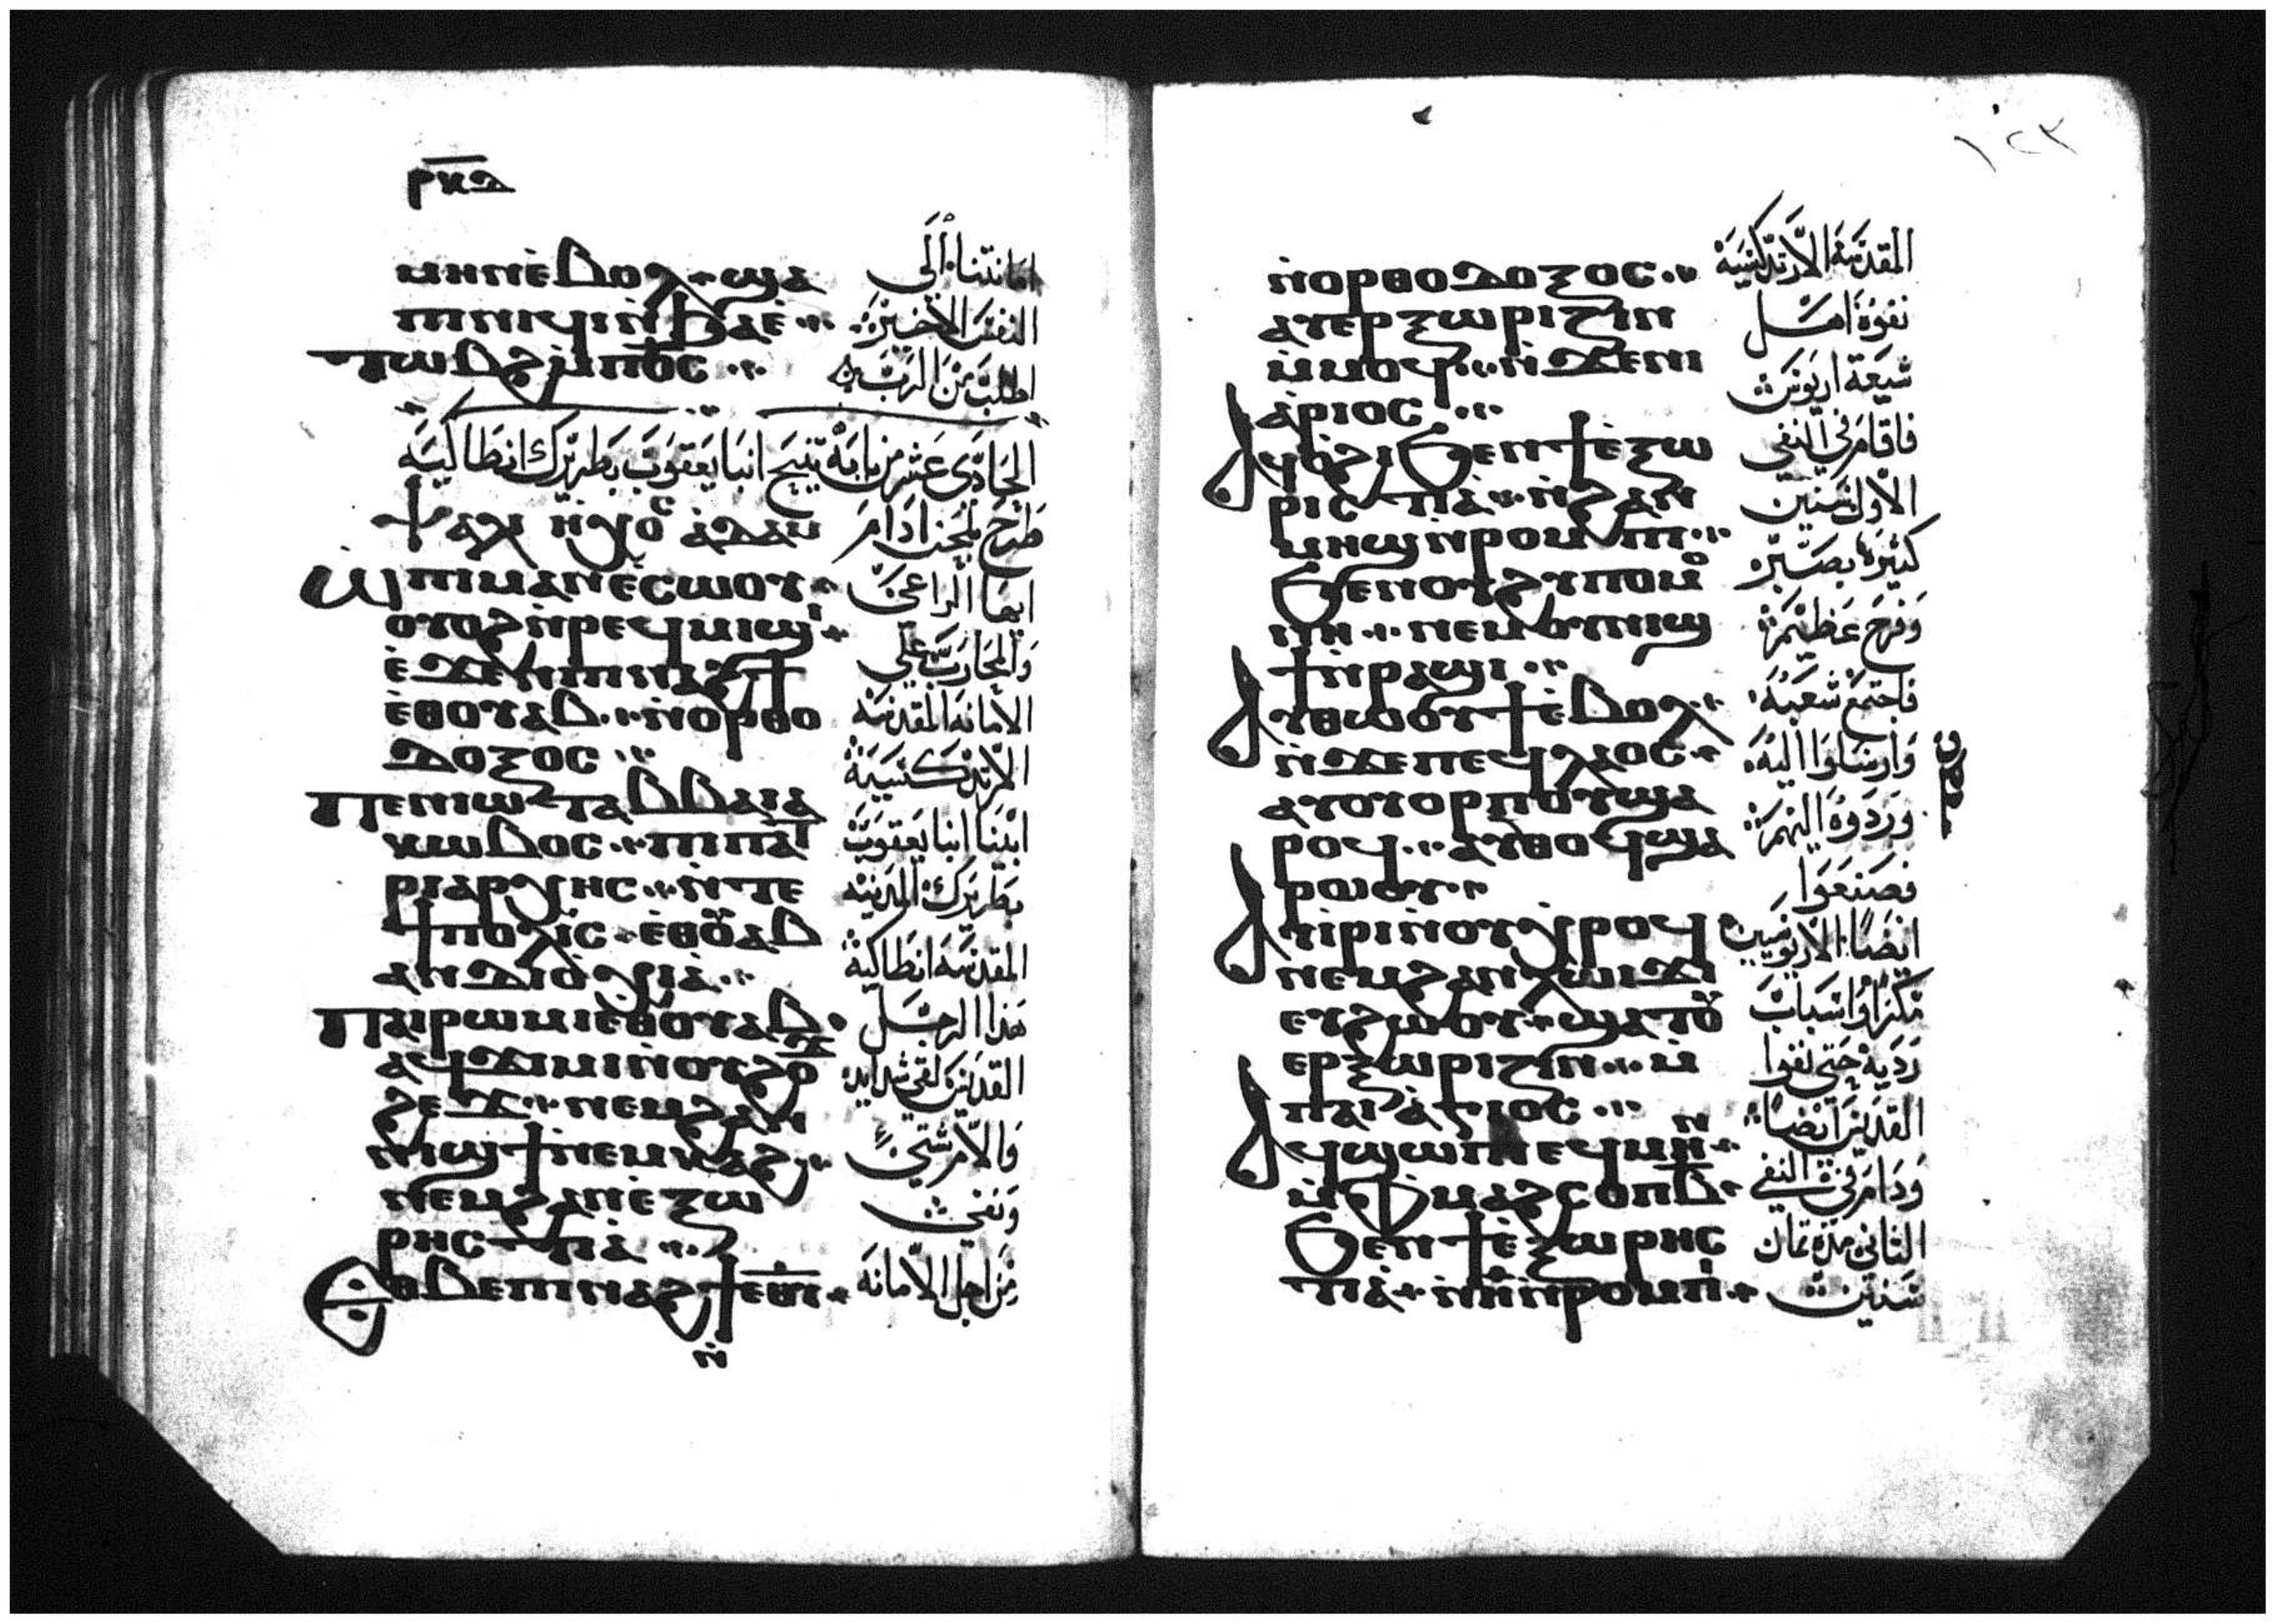 ⲣⲕⲇ
ⲙⲏⲛⲉ̀ⲃⲟⲗ ϣⲁ
ⲡⲓⲛⲓϥⲓⲛ̀ϧⲁⲉ̀
ⲧⲱⲃϩⲙ̀ⲡⲟ̅ⲥ̅
امانتنا الى
النفس الاخير
اطلب من الرب
الحادى عشر من بابه تنيح انبا يعقوب بطريرك انطاكيه
ⲯⲁⲗⲓ ⲛ̀ⲏⲭⲟⲥ ⲁ̀ⲇⲁⲙ
طرح بلحن ادام
ⲱ̀ⲡⲓⲙⲁⲛⲉ̀ⲥⲱⲟⲩ
ⲟⲩⲟϩⲛ̀ⲣⲉϥⲙⲓϣⲓ
ⲉ̀ϫⲉⲛⲡⲓⲛⲁϩϯ
ⲉ̀ⲑⲟⲩⲁⲃ ⲛ̀ⲟⲣⲑⲟ
ⲇⲟⲝⲟⲥ
ⲡⲉⲛⲓⲱⲧⲁⲃⲃⲁⲓⲁ
ⲕⲱⲃⲟⲥ ⲡⲓⲡⲁⲧ
ⲣⲓⲁⲣⲭⲏⲥ ⲛ̀ⲧⲉ
ϯⲡⲟⲗⲓⲥ ⲉ̀ⲑⲟⲩⲁⲃ
ⲁⲛⲇⲓⲟ̀ⲭⲓⲁ̀
ⲡⲁⲓⲣⲱⲙⲓⲉⲑⲟⲩⲁⲃ
ⲁϥϫⲓⲙⲓⲛ̀ⲟⲩϩⲟ
ϩⲉϫ ⲛⲉⲙϩⲁⲛ
ⲛⲓϣϯⲛⲉⲙⲕⲁϩ
ⲛⲉⲙϩⲁⲛⲉ̀ⲝⲱ
ⲣⲏⲥⲧⲓⲁ̀
ⲉⲑⲃⲉⲡⲓⲛⲁϩϯⲉⲑⲩ
ⲛ̀
ايها الراعى
والمحارب على
الامانه المقدسه
الارتدكسية
ابينا انبا يعقوب
بطريرك المدينه
المقدسه انطاكية
هذا الرجل
القديس لقى شدايد
ونفى
من اجل الامانه
١٢٣
ⲛ̀ⲟⲣⲑⲟⲇⲟⲝⲟⲥ
ⲁⲩⲉⲣⲝⲱⲣⲓⲍⲓⲛ
ⲙ̀ⲙⲟϥ ⲛ̀ϫⲉⲛⲓ
ⲁ̀ⲣⲓⲟⲥ
ⲁϥⲟ̀ϩⲓϧⲉⲛϯⲉ̀ⲝⲱ
ⲣⲓⲥⲧⲓⲁ̀ ⲛ̀ϩⲁⲛ
ⲙⲏϣⲛ̀ⲣⲟⲙⲡⲓ
ϧⲉⲛⲟⲩϩⲩⲡⲟⲙⲟ
ⲛⲏ ⲛⲉⲙⲟⲩⲛⲓϣ
ϯⲛ̀ⲣⲁϣⲓ
ⲁⲩⲑⲱⲟⲩϯⲉ̀ⲃⲟⲗ
ⲛ̀ϫⲉⲡⲉϥⲗⲁⲟⲥ
ⲁⲩⲟⲩⲟⲣⲡⲟⲩϣⲁ
ⲣⲟϥ ⲁⲩⲑⲟϥϣⲁ
ⲣⲱⲟⲩ
ⲁⲩⲓⲣⲓⲛ̀ⲟⲩⲭⲣⲟϥ
ⲛⲉⲙϩⲁⲛⲗⲱⲓϫⲓ
ⲉⲩϩⲱⲟⲩ ϣⲁⲧⲟⲩ
ⲉⲣⲝⲱⲣⲓⲍⲓⲛ ⲙ̀
ⲡⲁⲓⲁ̀ⲅⲓⲟⲥ
ⲁϥϣⲱⲡⲓⲉϥⲙⲏⲛ
ⲙ̀ⲫⲙⲁϩⲥⲟⲡⲃ̅
ϧⲉⲛϯⲉ̀ⲝⲱⲣⲏⲥ
ⲧⲓⲁ̀ ⲛ̀ⲏ̅ⲛ̀ⲣⲟⲙⲡⲓ
المقدسة الارتدكسيه
نفوه اهل
شيعة اريوس
فاقام فى النفى
الاول سنين
كثيرة بصبر
وفرح عظيم
فاجتمع شعبه
وارسلوا اليه
وردوه اليهم
فصنعوا
ايضا الاريوسيين
مكرا واسباب
رديه حتى نفوا
القديس ايضا
ودام فى النفى
الثانى مدة ثمان
سنين